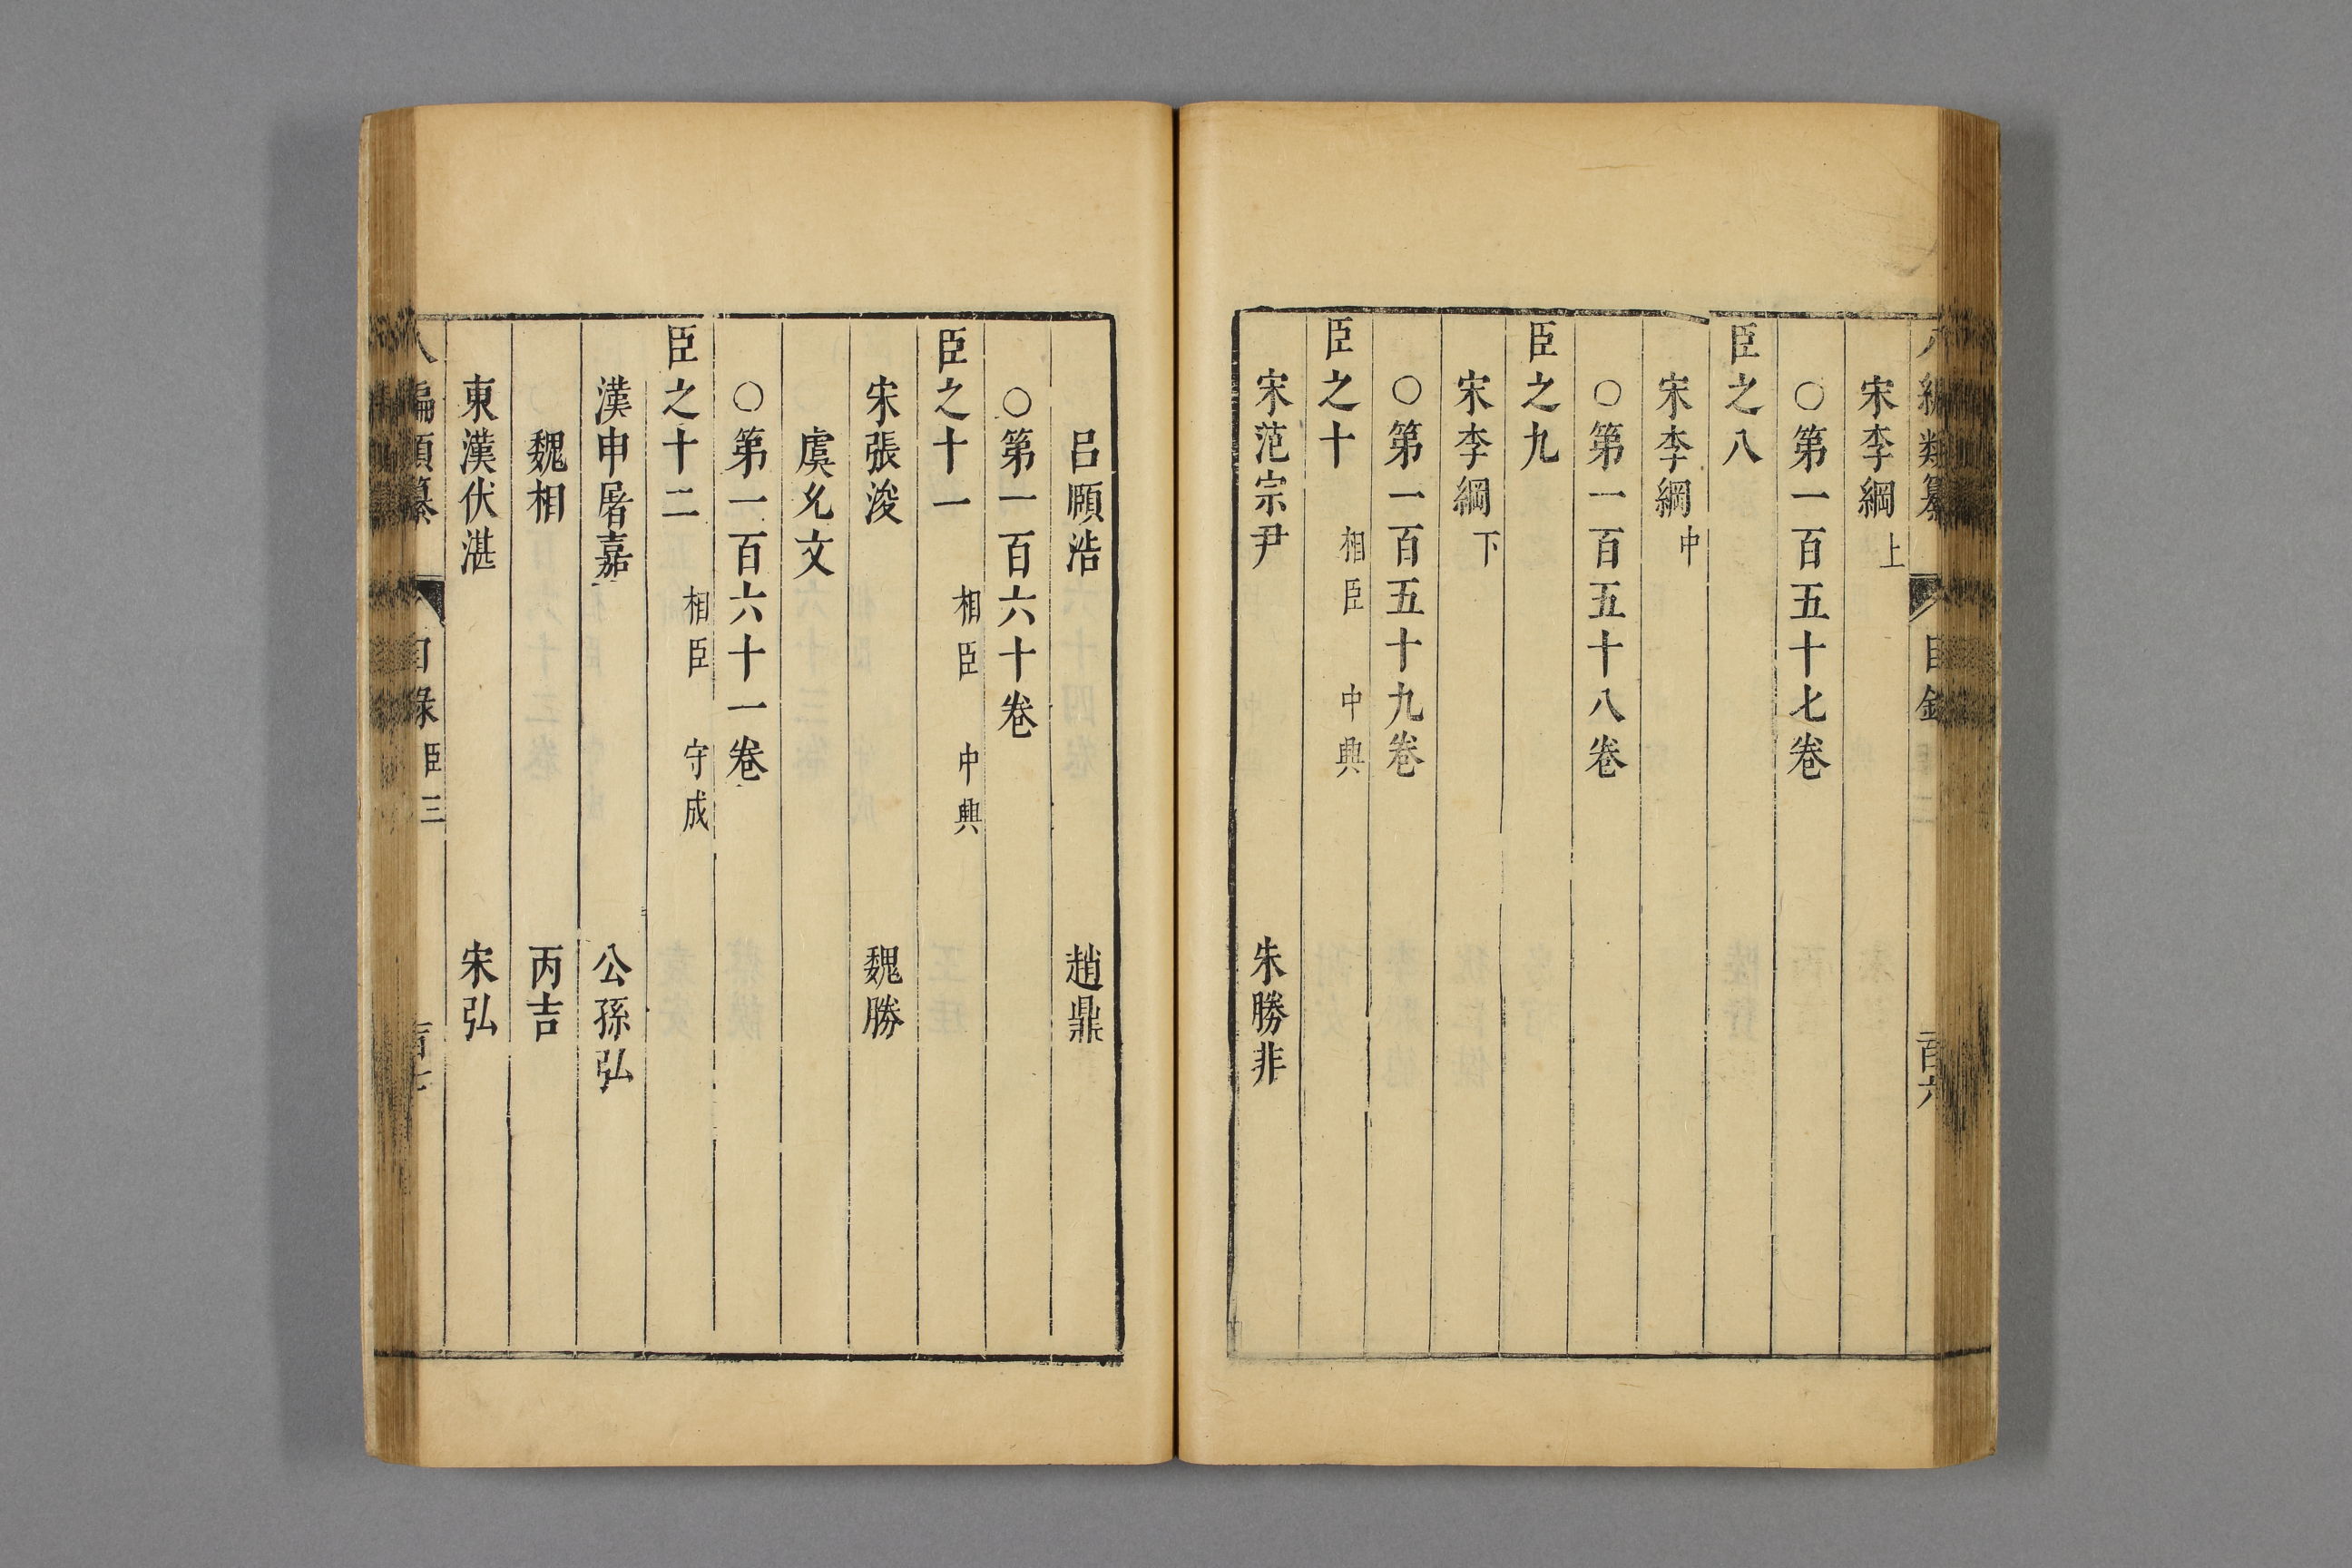 八編類纂 目錄 百六
宋李綱 上
○第一百五十七卷
臣之八
宋李綱 中
○第一百五十八卷
臣之九
宋李綱 下
○第一百五十九卷
臣之十 相臣 中興
宋范宗尹 朱勝非
呂頤浩 趙鼎
○第一百六十卷
臣之十一 相臣 中興
宋張浚 魏勝
虞允文
○第一百六十一卷
臣之十二 相臣 守成
漢申屠嘉 公孫弘
魏相 丙吉
東漢伏湛 宋弘
八編類纂 目錄 臣三